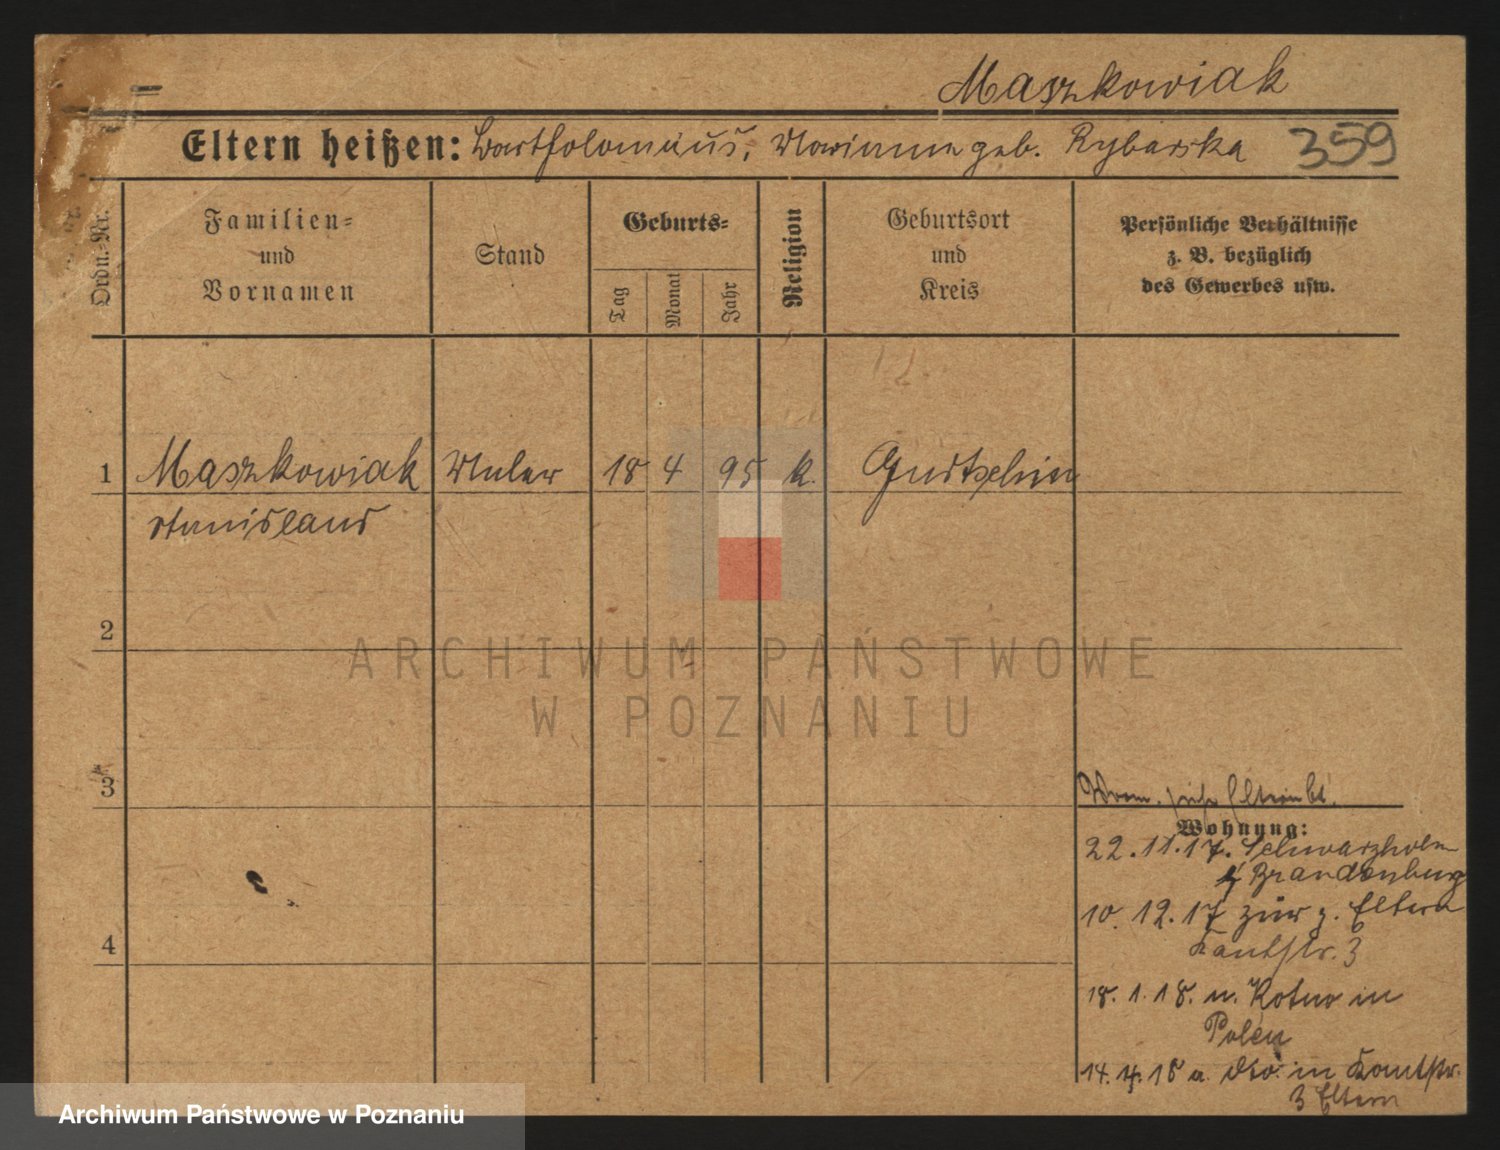 Maszkowiak
Eltern heißen: Bartholomäus, Marianna geb. Rybarska 359
Ordn.-Nr.
Familien-
und
Vornamen
Stand
Geburts-
Tag
Monat
Jahr
Religion
Geburtsort
und
Kreis
Persönliche Verhältnisse
z. B. bezüglich
des Gewerbes usw.
1 Maszkowiak Maler 18 4 95 k. Gurtschin
Stanislaus
2
3
4
Wohnung:
22.11.17. Schwarzholm
Brandenburg
10.12.17 zur z. Eltern
Kantstr. 3
18.1.18. n. in
Polen
14.4.18 a. in Kantstr.
3 Eltern
ARCHIWUM PAŃSTWOWE
W POZNANIU
Archiwum Państwowe w Poznaniu